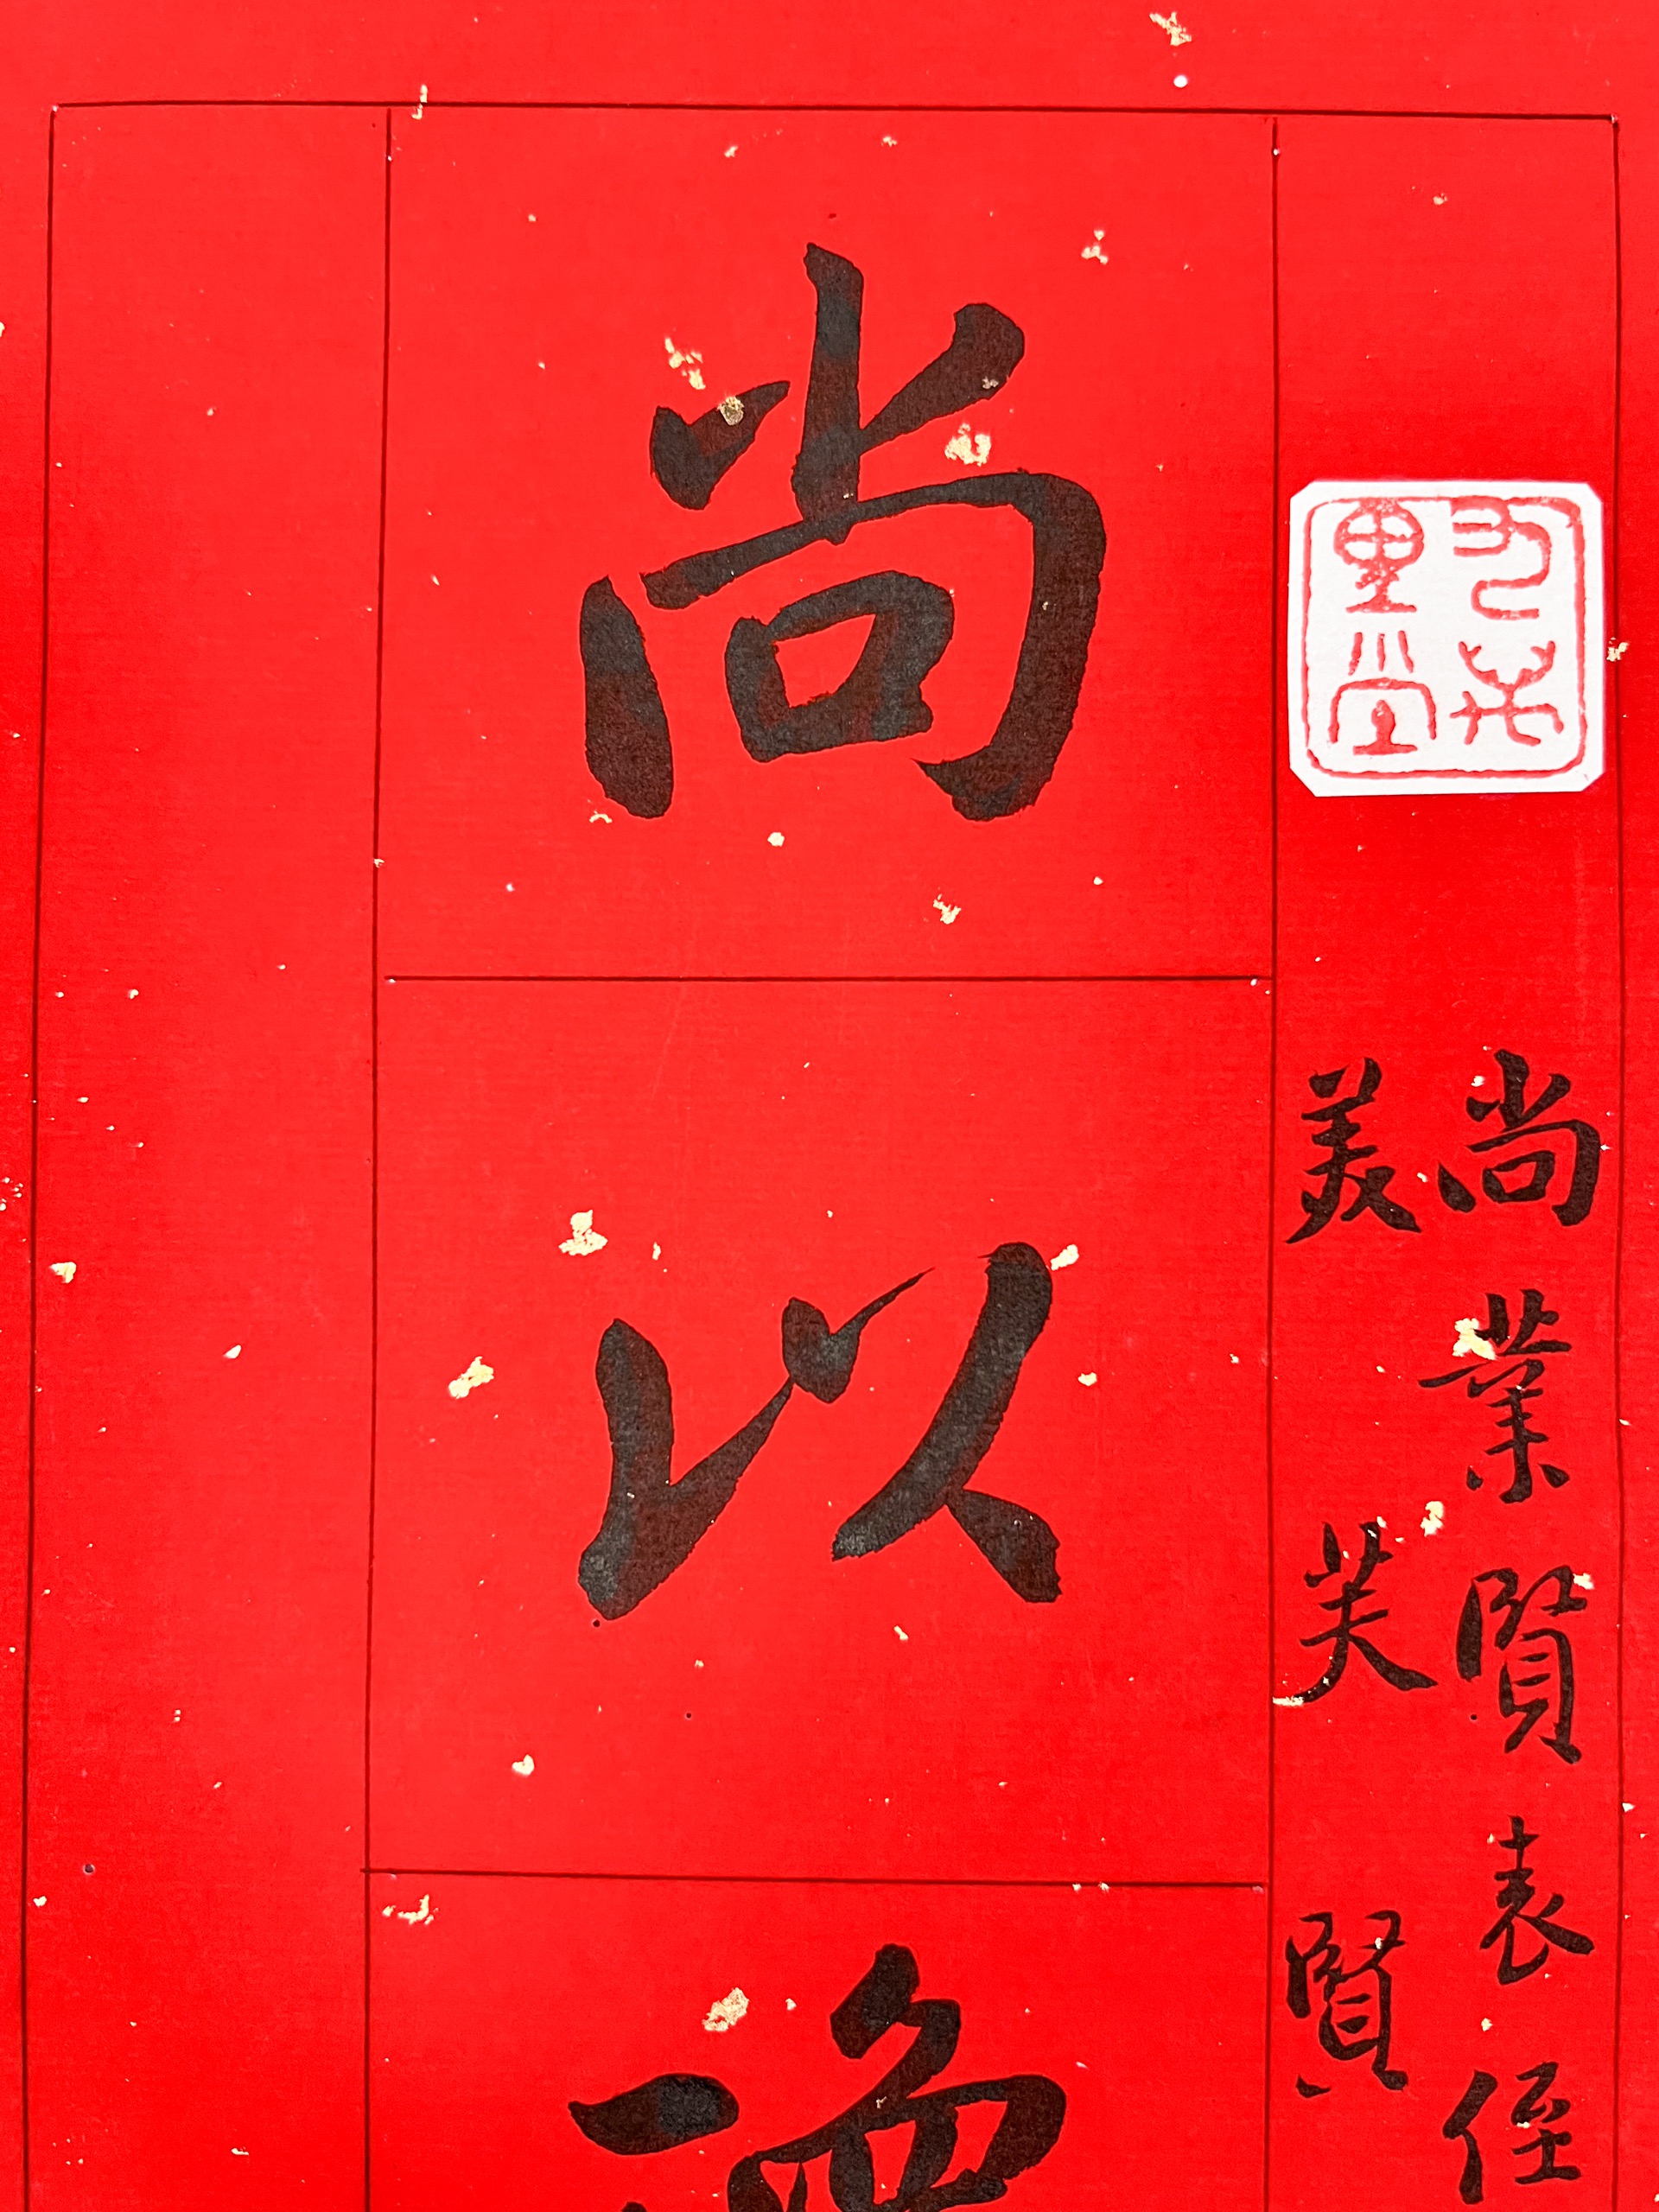 尚業賢表侄
美芙賢
尚以